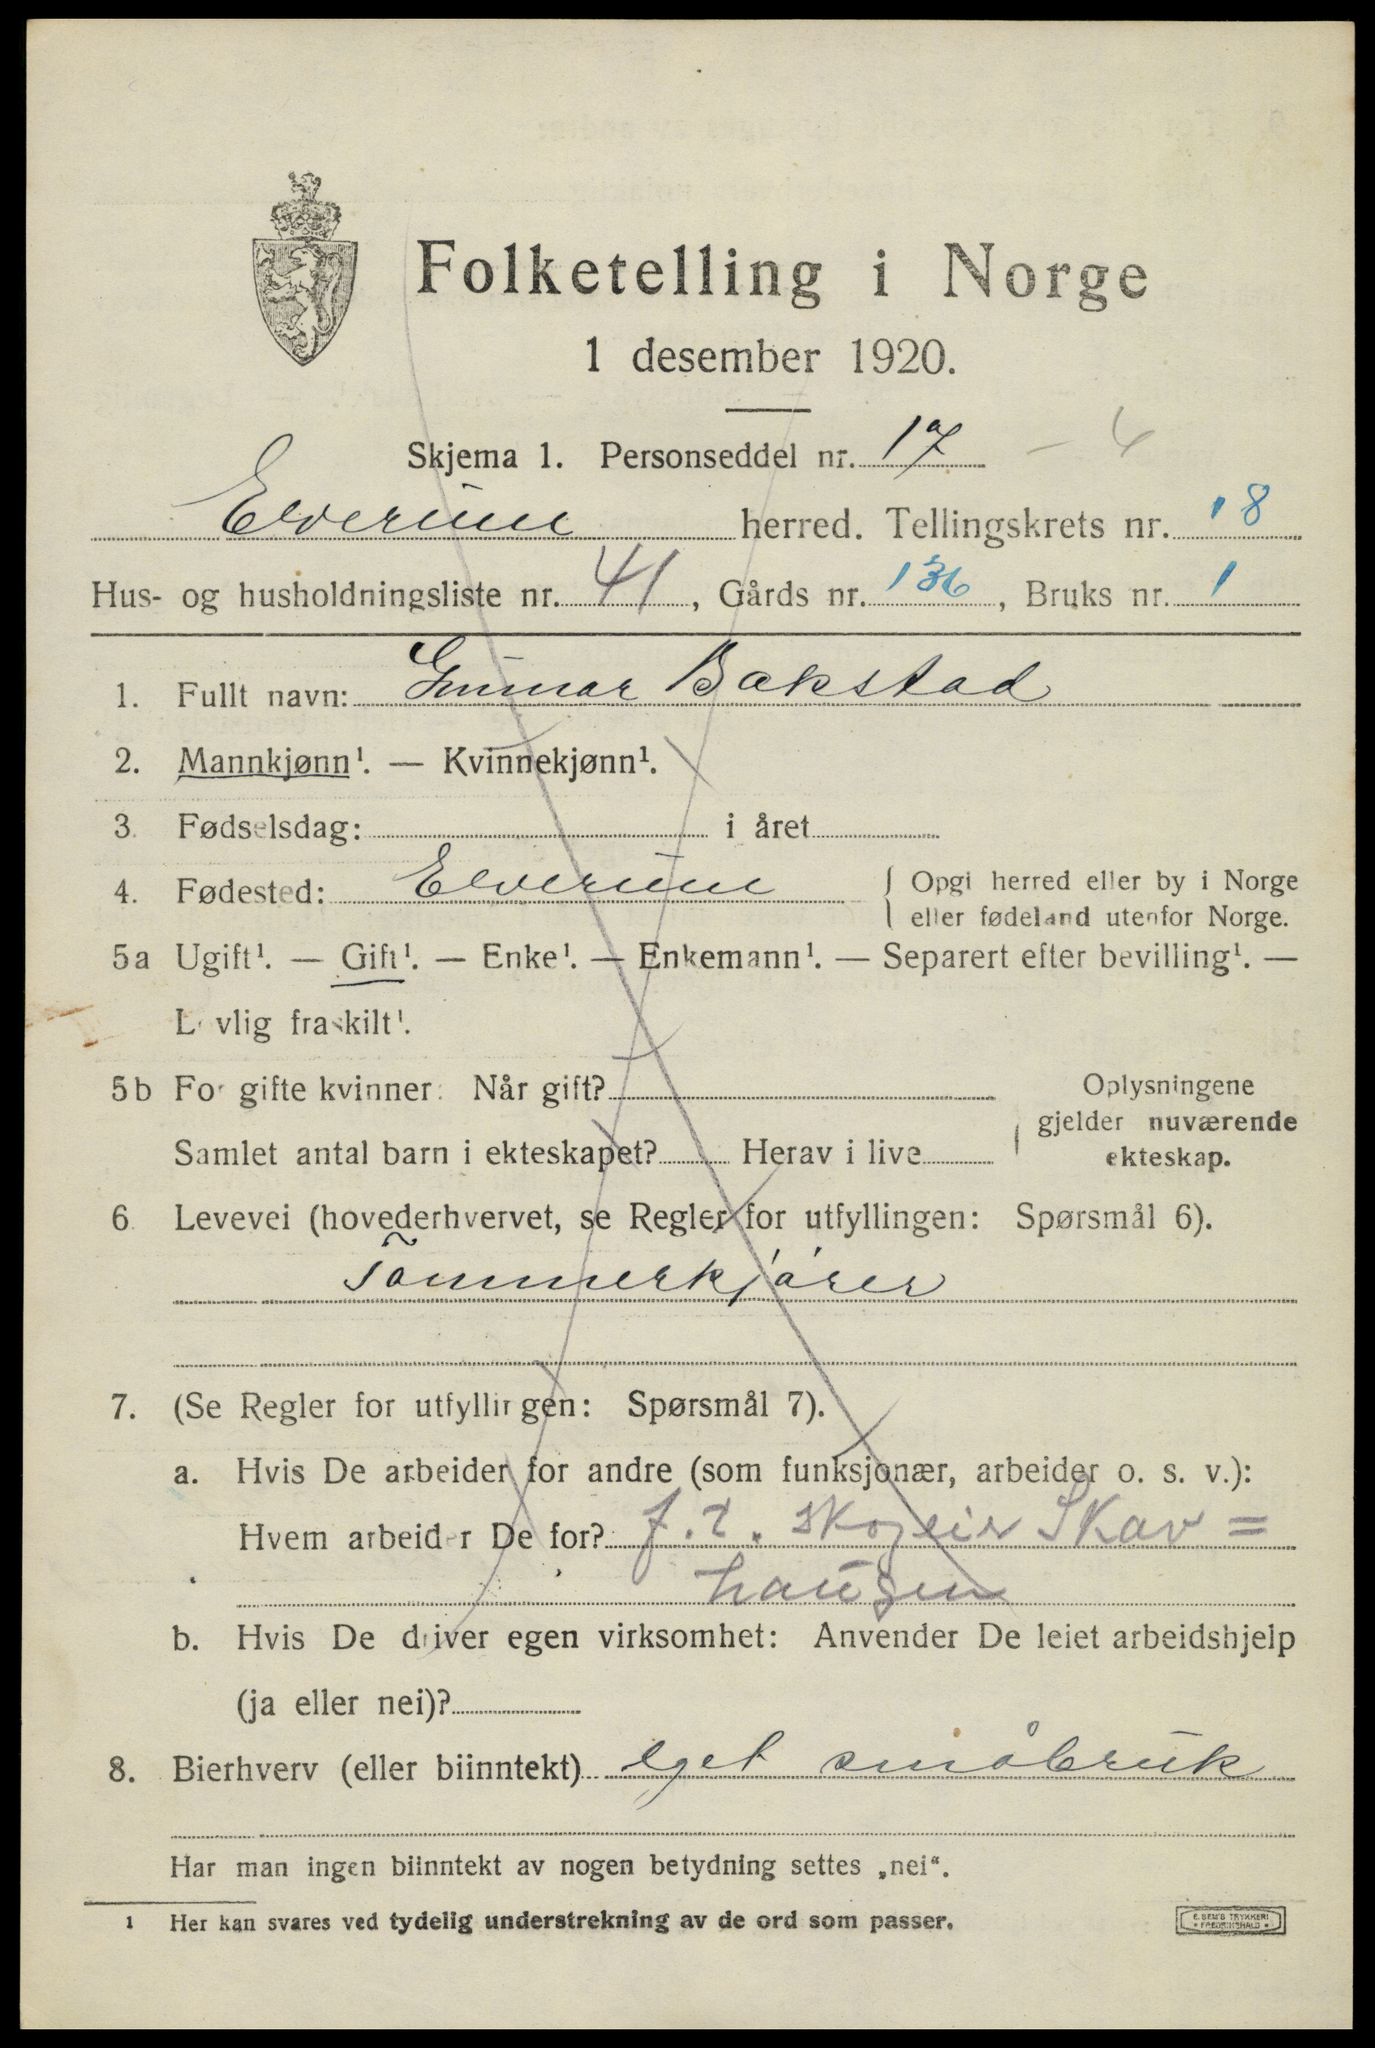 Folketelling i Norge
1 desember 1920.
Skjema 1. Personseddel nr. 17 - 4
Elverum herred. Tellingskrets nr. 18
Hus- og husholdningsliste nr. 41, Gårds nr. 136, Bruks nr. 1
1. Fullt navn: Gunnar Bakstad
2. Mannkjønn¹. — Kvinnekjønn¹.
3. Fødselsdag: i året
4. Fødested: Elverum { Opgi herred eller by i Norge
eller fødeland utenfor Norge.
5a Ugift¹. — Gift¹. — Enke¹. — Enkemann¹. — Separert efter bevilling¹. —
Lovlig fraskilt¹.
5b For gifte kvinner: Når gift? Oplysningene
gjelder nuværende
Samlet antal barn i ekteskapet? Herav i live ekteskap.
6. Levevei (hovederhvervet, se Regler for utfyllingen: Spørsmål 6).
Tømmerkjører
7. (Se Regler for utfyllingen: Spørsmål 7).
a. Hvis De arbeider for andre (som funksjonær, arbeider o. s. v.):
Hvem arbeider De for? f.t. skogeier Skav=
haugen
b. Hvis De driver egen virksomhet: Anvender De leiet arbeidshjelp
(ja eller nei)?
8. Bierhverv (eller biinntekt) eget småbruk
Har man ingen biinntekt av nogen betydning settes „nei“.
1 Her kan svares ved tydelig understrekning av de ord som passer.
E. SEM'S TRYKKERI
FREDRIKSHALD